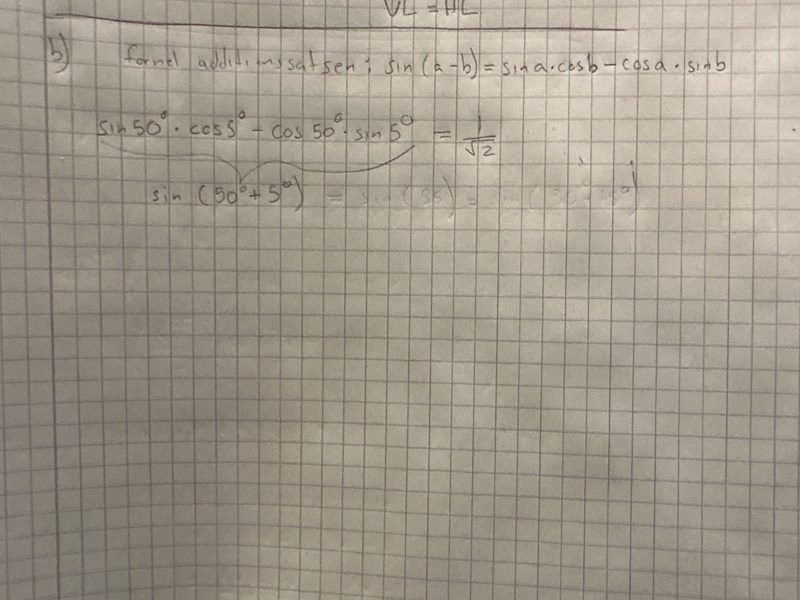 VL = HL
b) formel additionssatsen: sin (a-b) = sin a · cos b - cos a · sin b
sin 50° · cos 5° - cos 50° · sin 5° = 1/√2
sin (50° + 5°) =